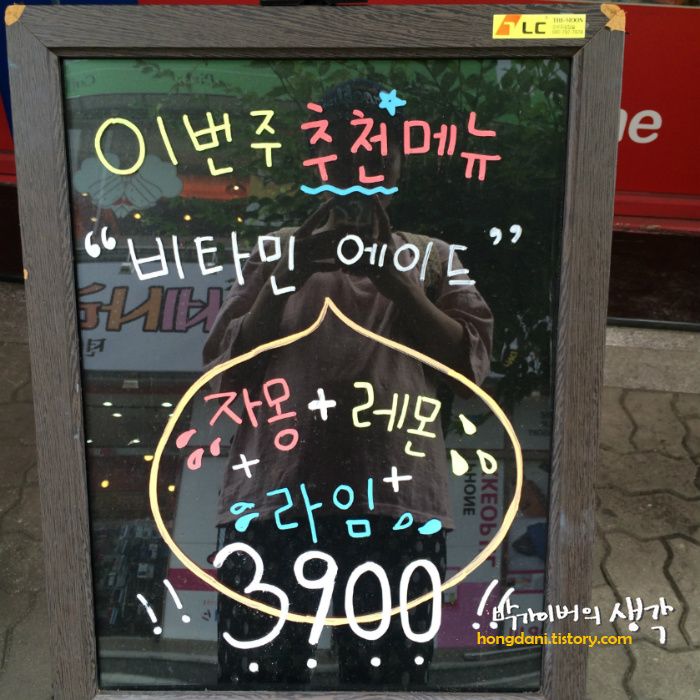 LC
THE-MOON
ne
이번주 추천메뉴
“비타민 에이드”
자몽 + 레몬
+ +
라임
!! 3900 !!
박가이버의 생각
hongdani.tistory.com